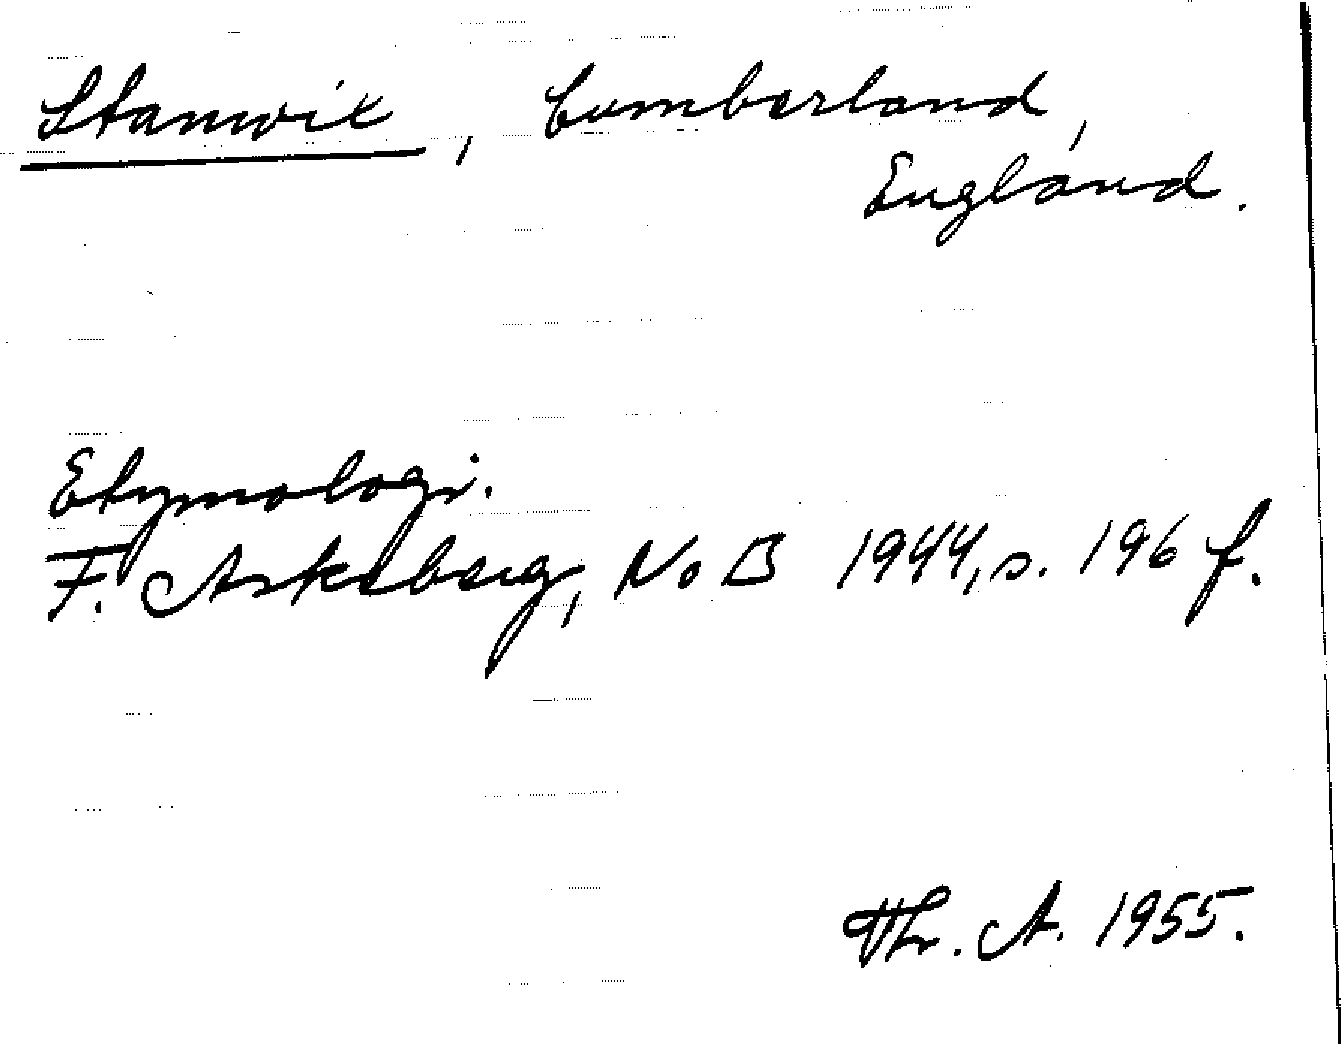 Stanwix, Cumberland,
England.
Etymologi.
F. Askeberg, NoB 1944, s. 196 f.
Th. A. 1955.